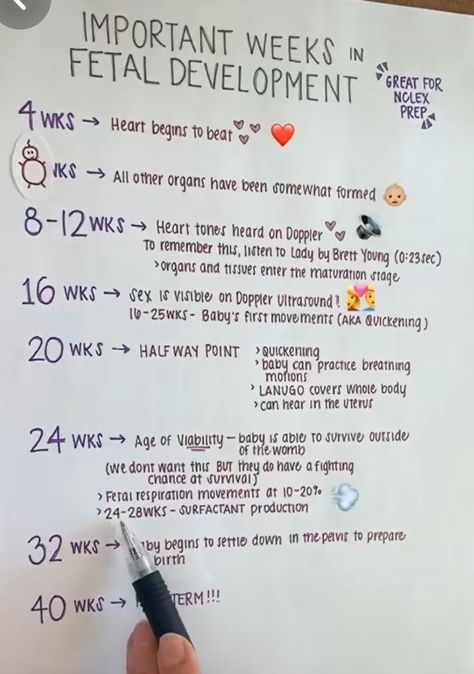 IMPORTANT WEEKS IN
FETAL DEVELOPMENT
GREAT FOR
NCLEX
PREP
4 WKS → Heart begins to beat
WKS → All other organs have been somewhat formed
8-12 WKS → Heart tones heard on Doppler
To remember this, listen to Lady by Brett Young (0:23sec)
>organs and tissues enter the maturation stage
16 WKS → Sex is visible on Doppler Ultrasound!
16-25WKS- Baby's first movements (AKA Quickening)
20 WKS → HALF WAY POINT
>Quickening
>baby can practice breathing
motions
>LANUGO covers whole body
>can hear in the uterus
24 WKS → Age of Viability - baby is able to survive outside
of the womb
(we dont want this BUT they do have a fighting
chance at survival)
>Fetal respiration movements at 10-20%
>24-28WKS - SURFACTANT production
32 WKS → by begins to settle down in the pelvis to prepare
birth
40 WKS → TERM!!!